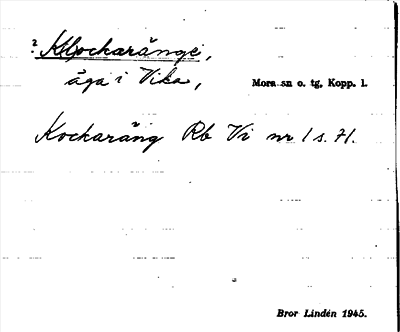 ? Klockaränge,
äga i Vika,
Mora sn o. tg, Kopp. l.
Kockaräng Rb Vi nr 1 s. 71.
Bror Lindén 1945.